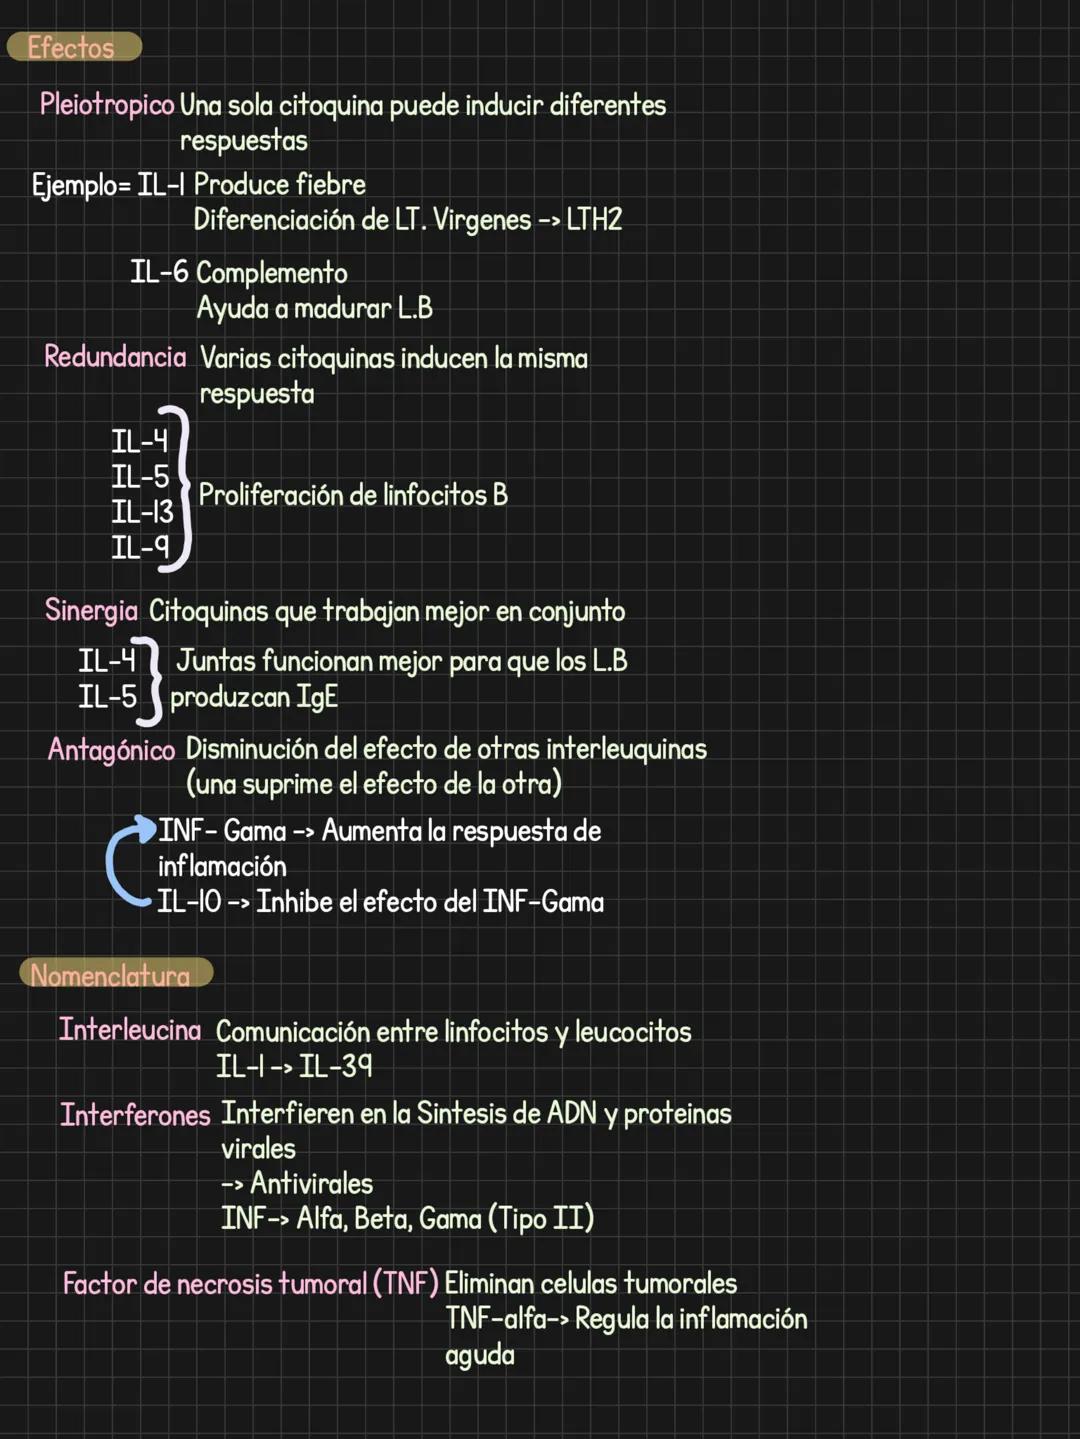 Efectos
Pleiotropico Una sola citoquina puede inducir diferentes
respuestas
Ejemplo= IL-1 Produce fiebre
Diferenciación de LT. Virgenes -> LTH2
IL-6 Complemento
Ayuda a madurar L.B
Redundancia Varias citoquinas inducen la misma
respuesta
IL-4
IL-5
Proliferación de linfocitos B
IL-13
IL-9
Sinergia Citoquinas que trabajan mejor en conjunto
IL-4 Juntas funcionan mejor para que los L.B
IL-5 produzcan IgE
Antagónico Disminución del efecto de otras interleuquinas
(una suprime el efecto de la otra)
INF- Gama -> Aumenta la respuesta de
inflamación
IL-10 -> Inhibe el efecto del INF-Gama
Nomenclatura
Interleucina Comunicación entre linfocitos y leucocitos
IL-1 -> IL-39
Interferones Interfieren en la Sintesis de ADN y proteinas
virales
-> Antivirales
INF-> Alfa, Beta, Gama (Tipo II)
Factor de necrosis tumoral (TNF) Eliminan celulas tumorales
TNF-alfa-> Regula la inflamación
aguda